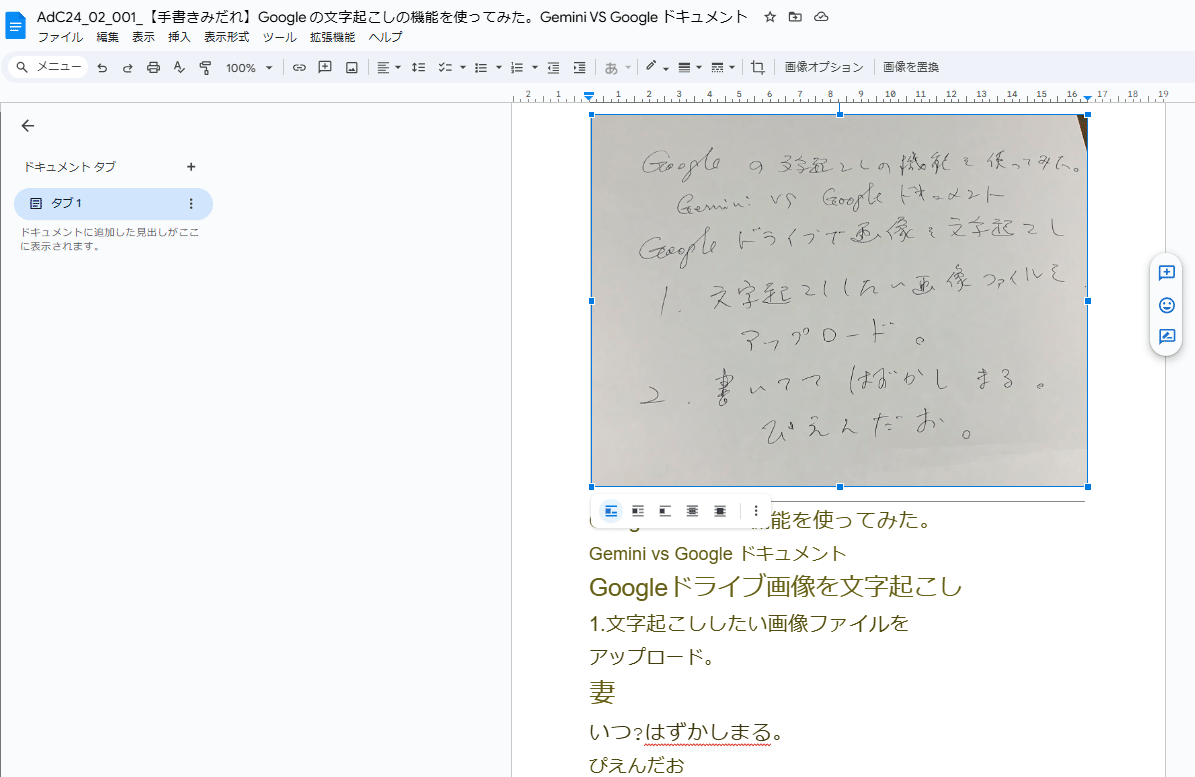 AdC24_02_001_【手書きみだれ】Google の文字起こしの機能を使ってみた。Gemini VS Google ドキュメント
ファイル 編集 表示 挿入 表示形式 ツール 拡張機能 ヘルプ
メニュー 100% あ 画像オプション 画像を置換
2 1 1 2 3 4 5 6 7 8 9 10 11 12 13 14 15 16 17 18 19
ドキュメント タブ +
タブ 1
ドキュメントに追加した見出しがここ
に表示されます。
Google の文字起こしの機能を使ってみた。
Gemini vs Google ドキュメント
Google ドライブで画像を文字起こし
1. 文字起こししたい画像ファイルを
アップロード。
2. 書いてて はずかしまる。
ぴえんだお。
能を使ってみた。
Gemini vs Google ドキュメント
Googleドライブ画像を文字起こし
1.文字起こししたい画像ファイルを
アップロード。
妻
いつ?はずかしまる。
ぴえんだお